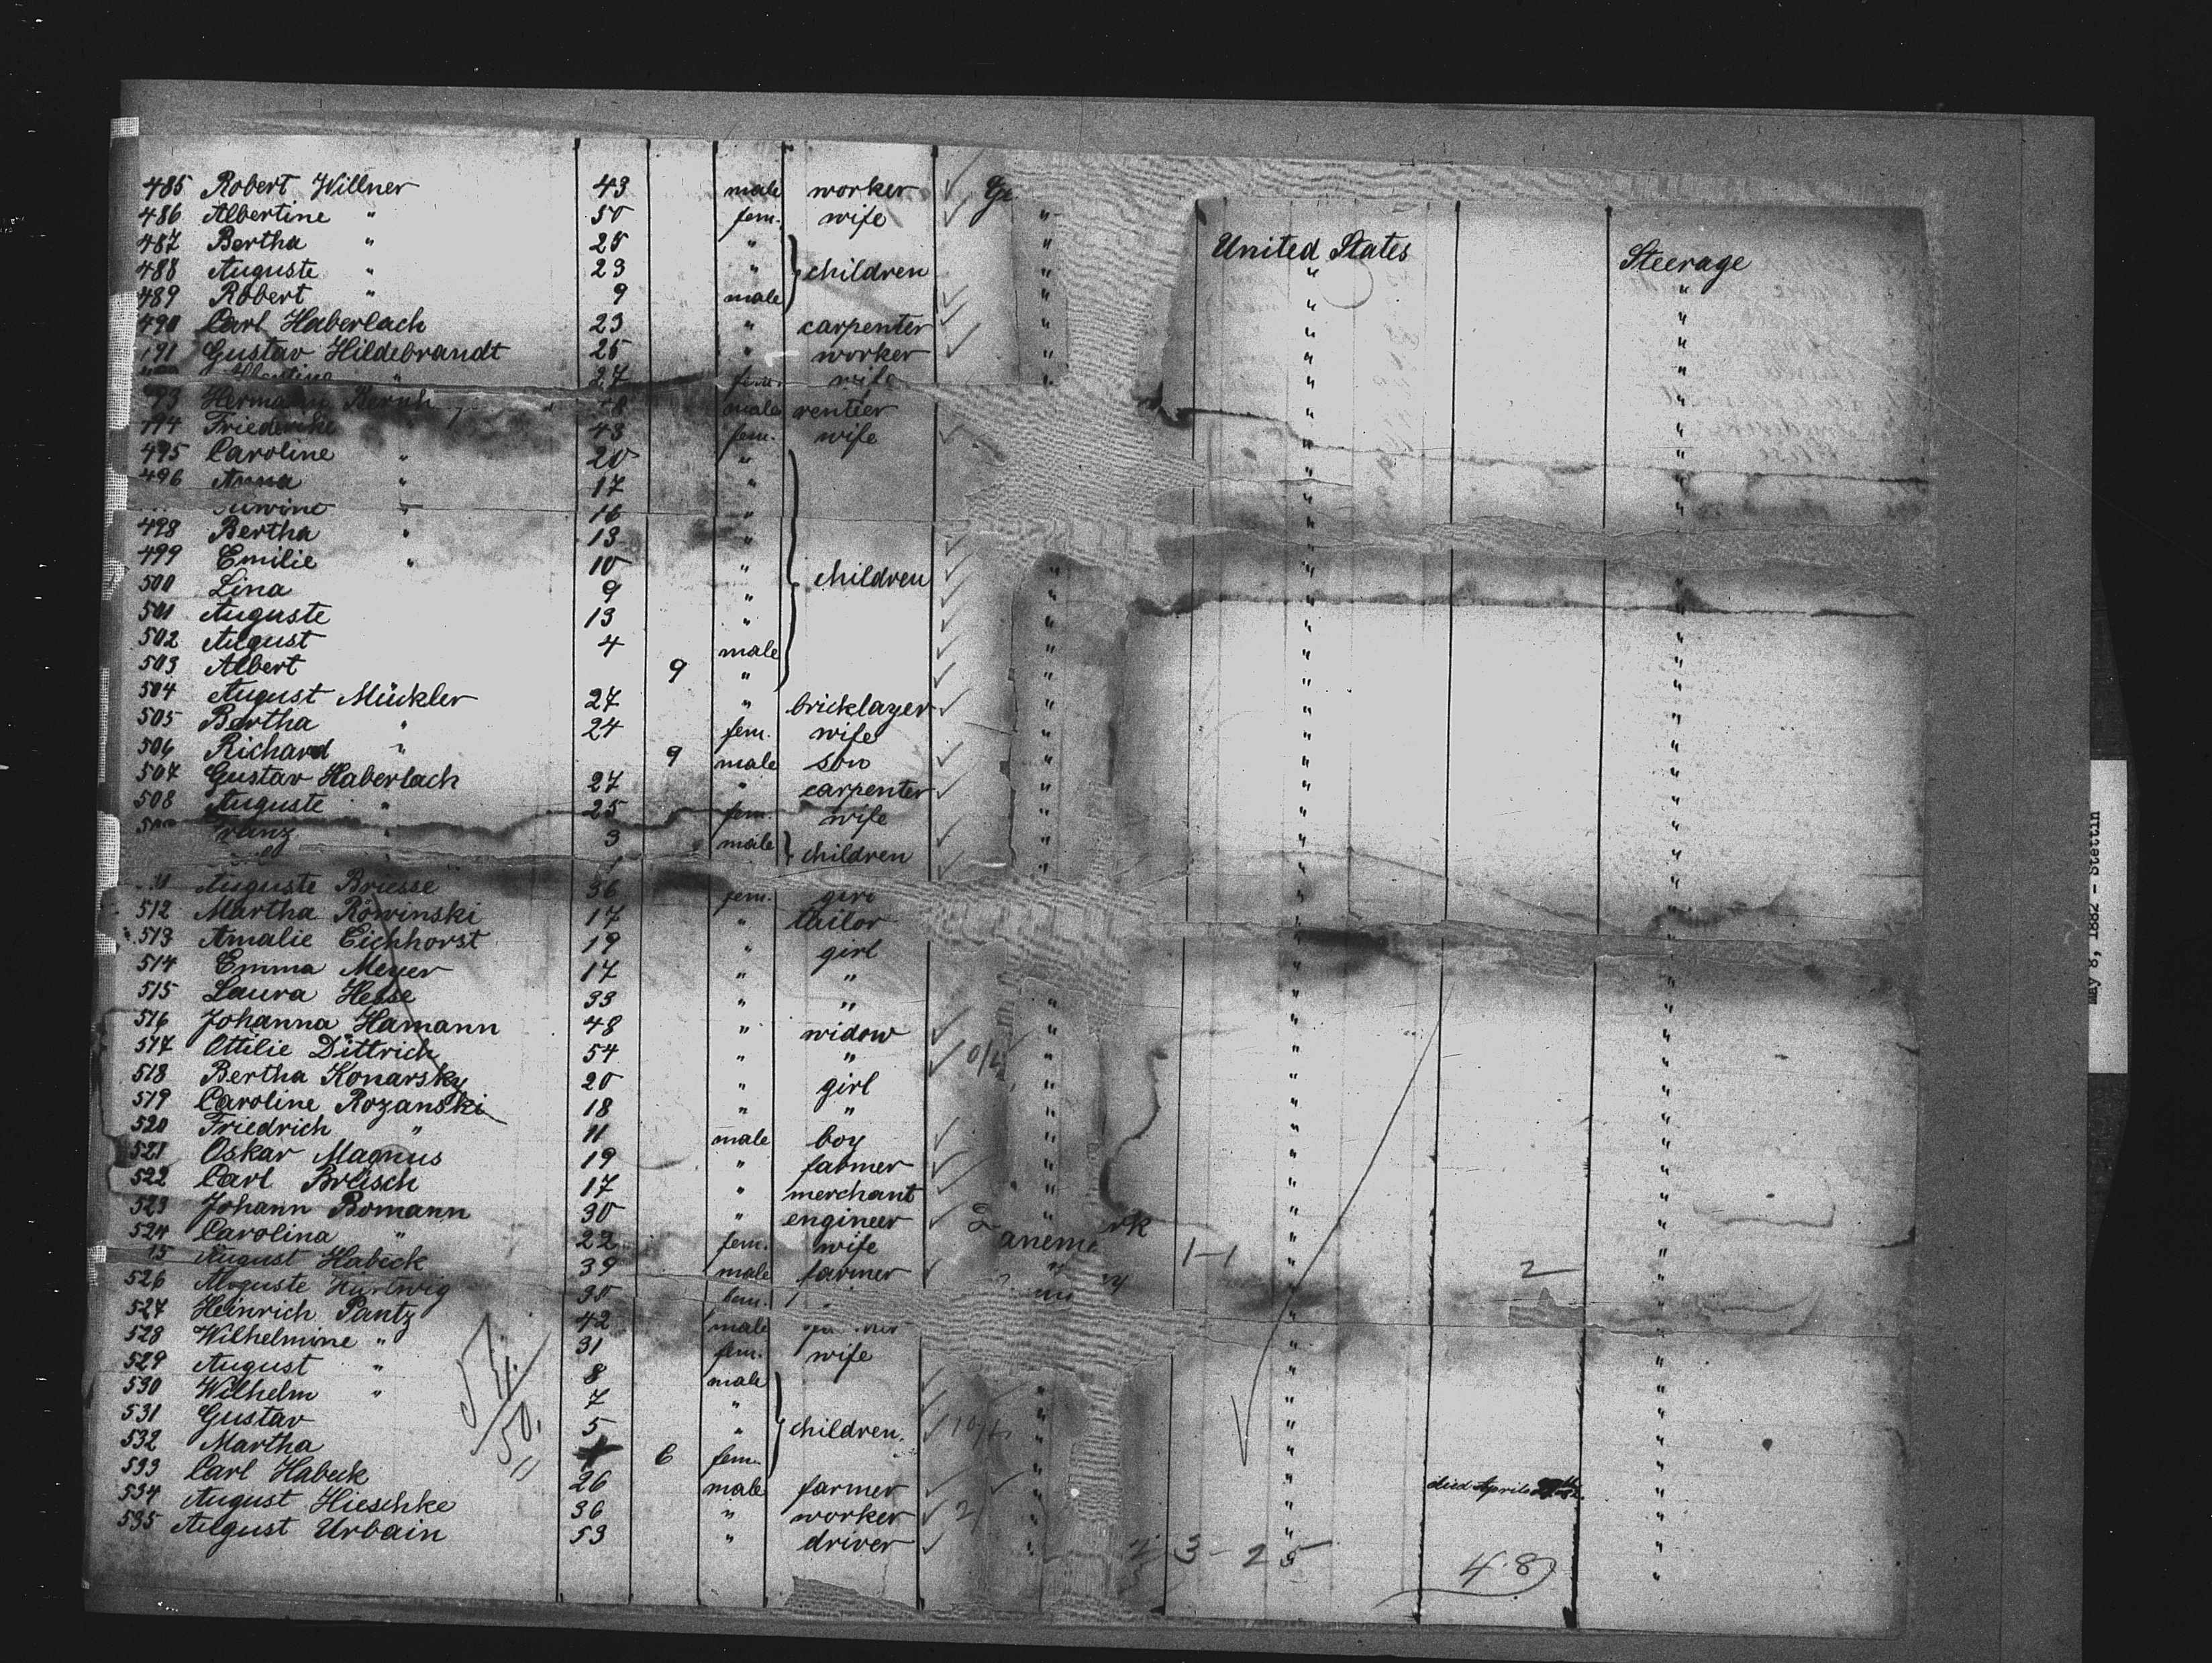 485 Robert Willner 43 male worker Ge United States Steerage
486 Albertine " 50 fem. wife " " "
487 Bertha " 25 " " " "
488 Auguste " 23 " children " " "
489 Robert " 9 male " " "
490 Carl Haberlach 23 " carpenter " " "
191 Gustav Hildebrandt 25 " worker " " "
" 27 fem. wife " " "
93 Hermann male rentier " "
494 Friederike " 43 fem. wife " "
495 Caroline " 20 " " "
496 Anna " 17 " " "
" 16 " " "
498 Bertha " 13 " " "
499 Emilie " 10 " children " " "
500 Lina 9 " " " "
501 Auguste 13 " " " "
502 August 4 male " " "
503 Albert 9 " " " "
504 August Mückler 27 " bricklayer " " "
505 Bertha " 24 fem. wife " " "
506 Richard " 9 male son " " "
507 Gustav Haberlach 27 " carpenter " " "
508 Auguste " 25 fem. wife " " "
Franz " 3 male children " " "
Auguste Briesse 36 fem. girl " "
512 Martha Rowinski 17 " tailor " "
513 Amalie Eichhorst 19 " girl " "
514 Emma Meyer 17 " " " "
515 Laura Hesse 33 " " " " "
516 Johanna Hamann 48 " widow " " "
517 Ottilie Dittrich 54 " " " " "
518 Bertha Konarsky 20 " girl " " "
519 Caroline Rozanski 18 " " " " "
520 Friedrich " 11 male boy " " "
521 Oskar Magnus 19 " farmer " " "
522 Carl Brlisch 17 " merchant " " "
523 Johann Bomann 30 " engineer Danemark " "
524 Carolina " 22 fem. wife " 1-1 " 2 "
August Habeck 39 male farmer " "
526 Auguste Hartwig 30 fem. " "
527 Heinrich Pantz 42 male " "
528 Wilhelmine " 31 fem. wife " "
529 August " 8 male " " "
530 Wilhelm " 7 " " " "
531 Gustav 5 " children " " "
532 Martha 6 fem. " " died April "
533 Carl Habeck 26 male farmer " " "
534 August Hieschke 36 " worker 2 " " "
535 August Urbain 53 " driver " " "
3-25 48
May 8, 1882 - Stettin